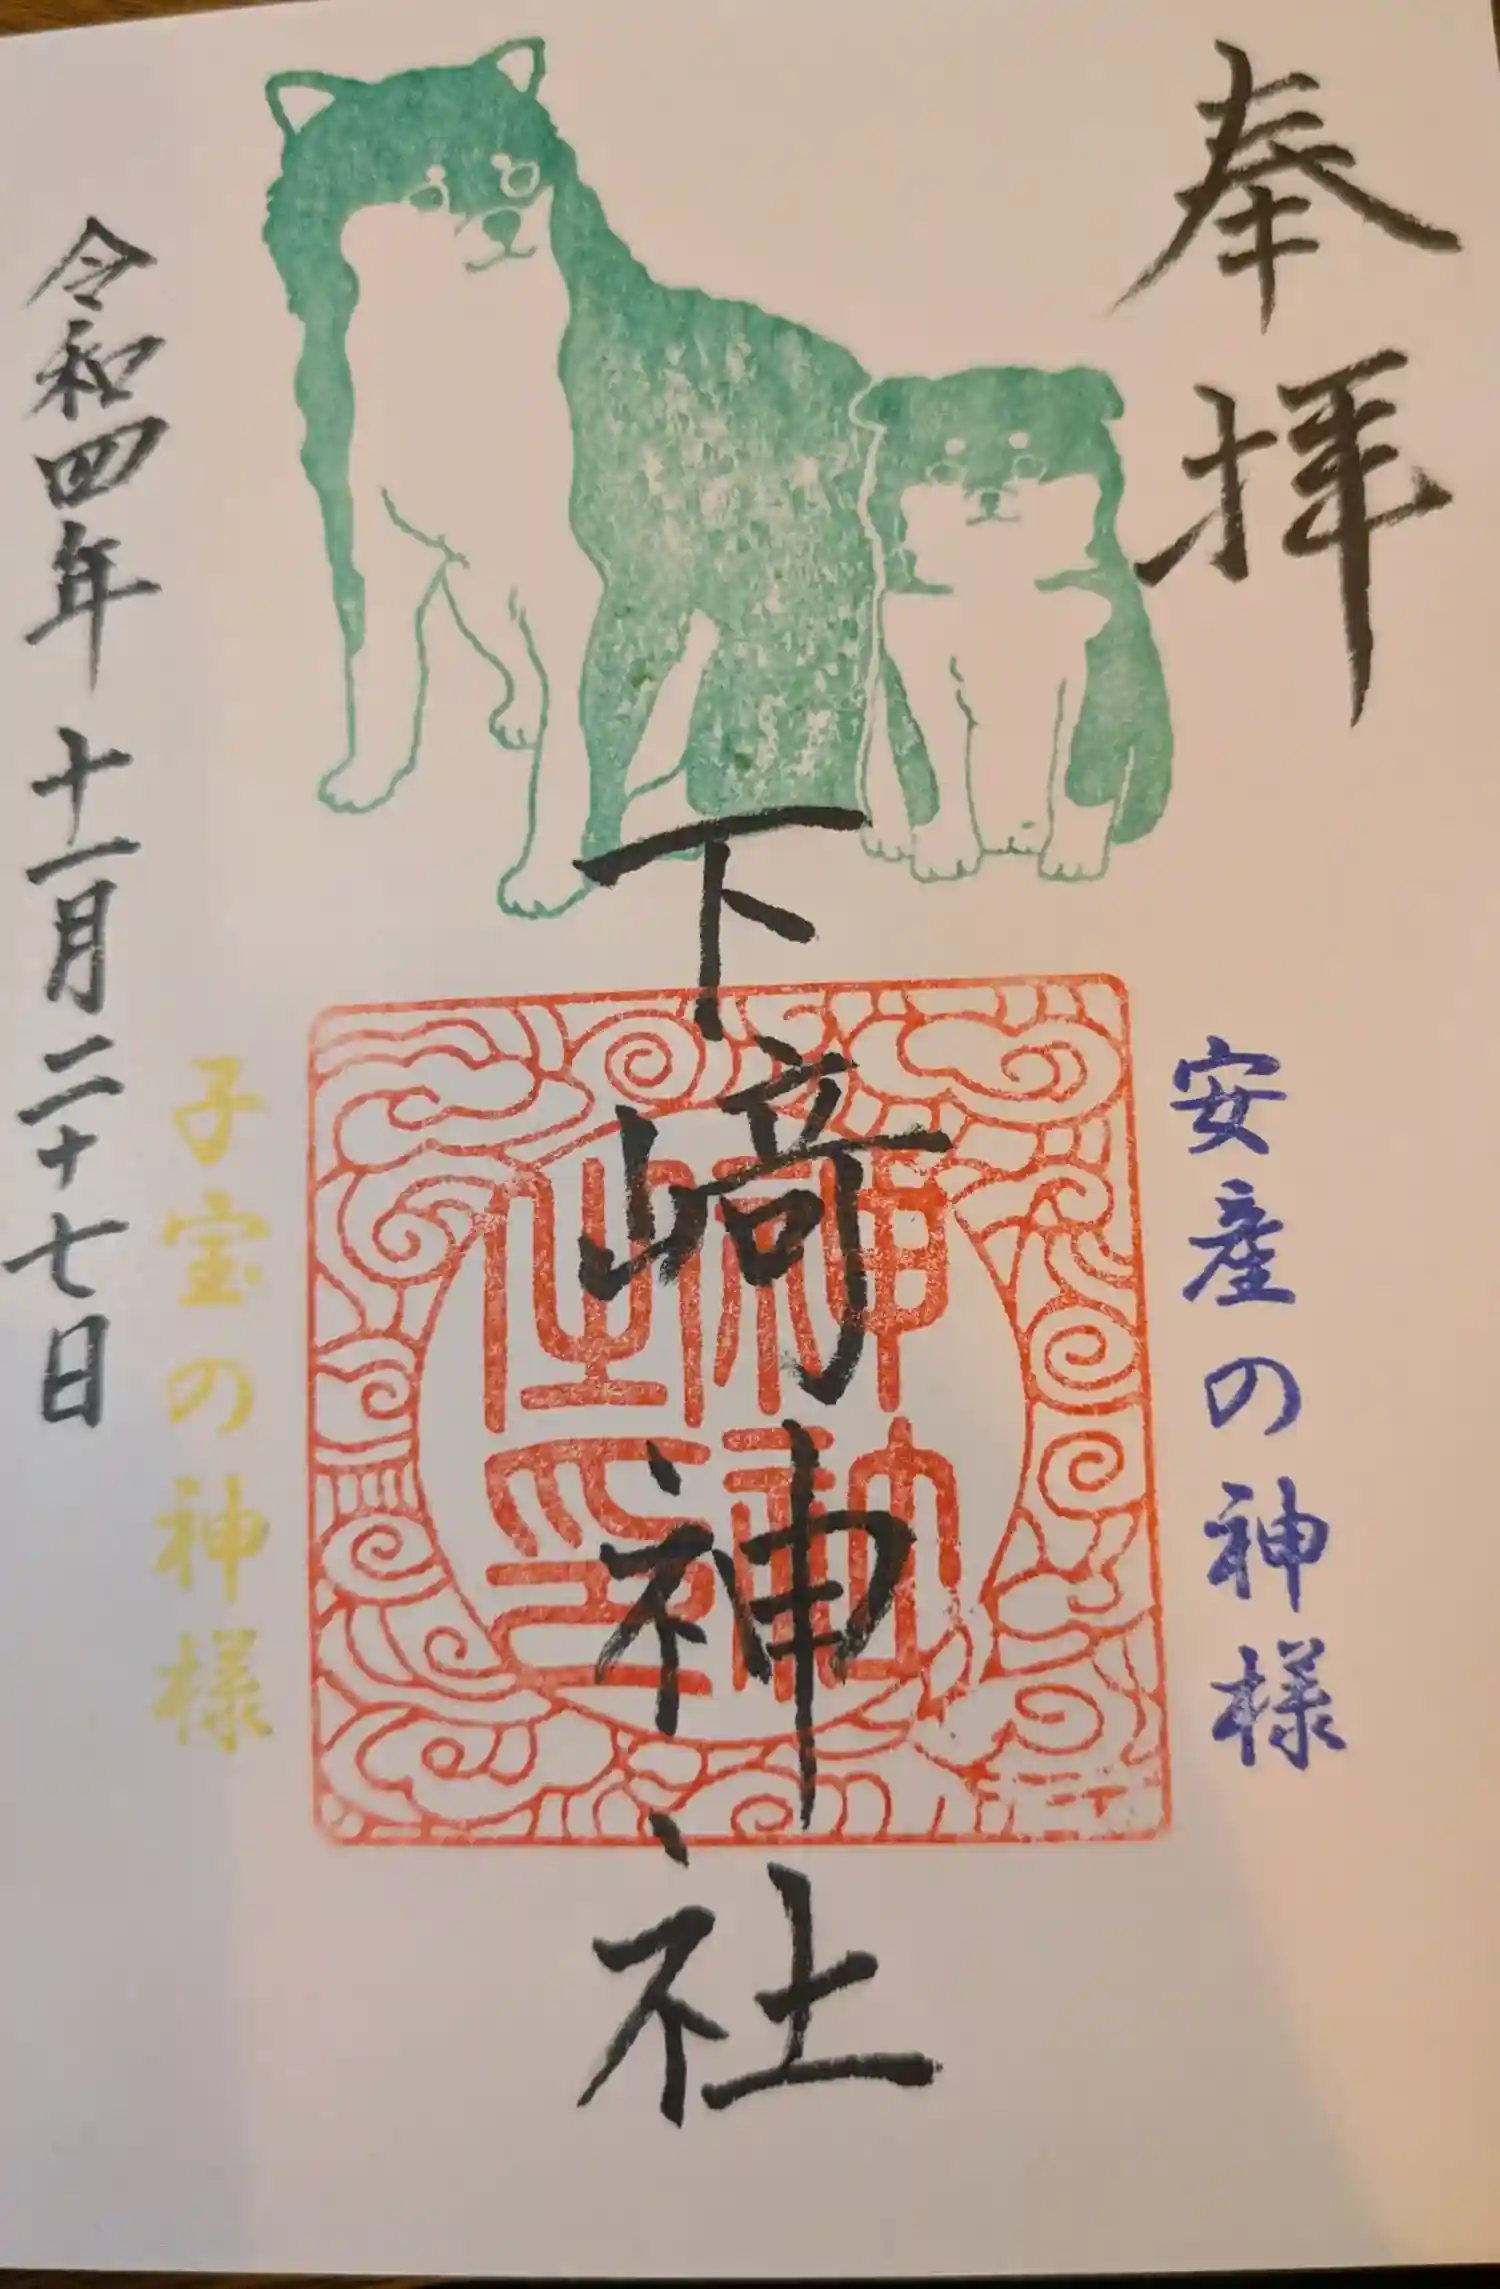 奉拝
安産の神様
下﨑神社
子宝の神様
令和四年十一月二十七日